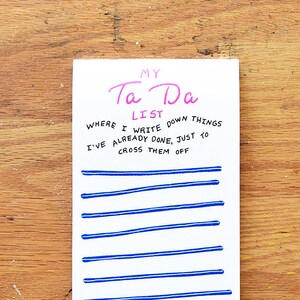 MY
Ta Da
LIST
WHERE I WRITE DOWN THINGS
I'VE ALREADY DONE, JUST TO
CROSS THEM OFF